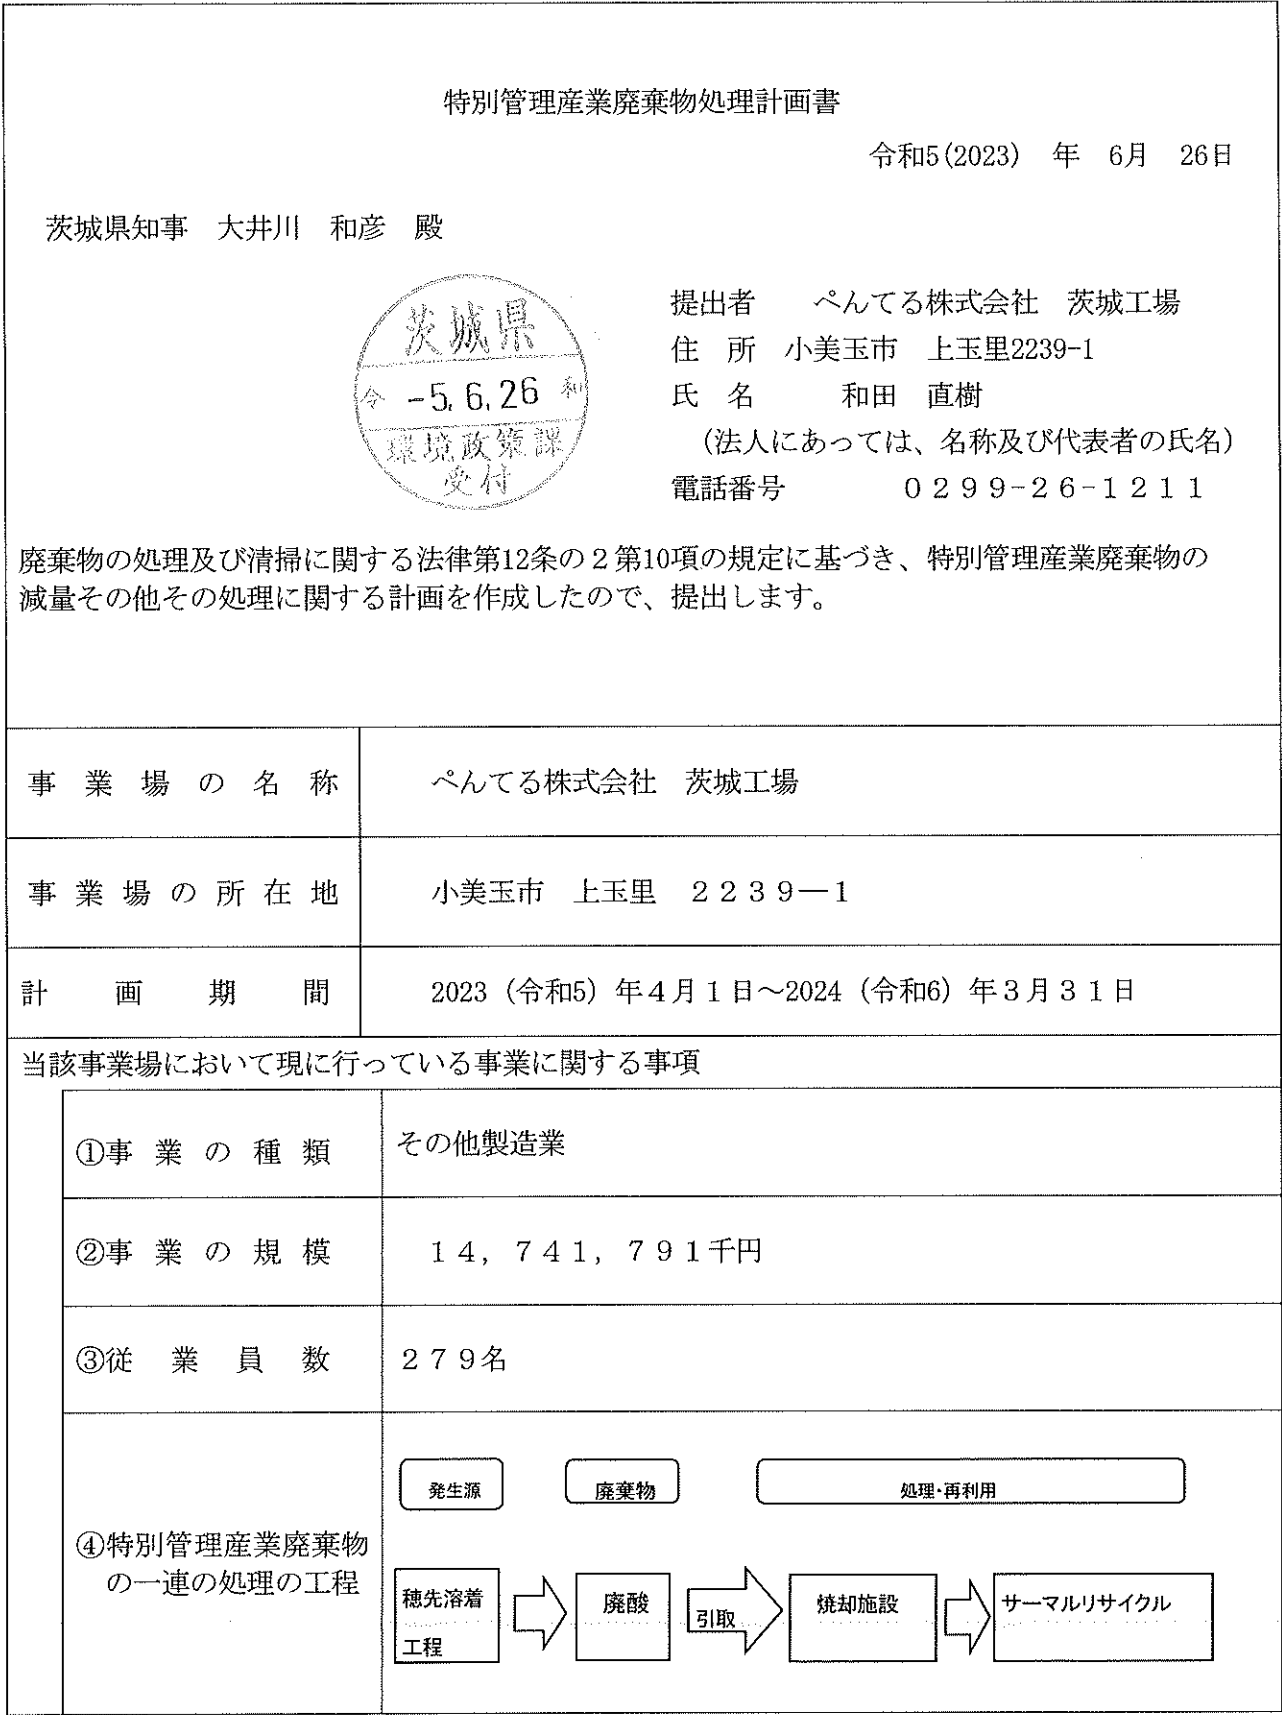 特別管理産業廃棄物処理計画書
令和5(2023) 年 6月 26日
茨城県知事 大井川 和彦 殿
茨城県
令 -5.6.26 和
環境政策課
受付
提出者 ぺんてる株式会社 茨城工場
住 所 小美玉市 上玉里2239-1
氏 名 和田 直樹
(法人にあっては、名称及び代表者の氏名)
電話番号 0299-26-1211
廃棄物の処理及び清掃に関する法律第12条の2第10項の規定に基づき、特別管理産業廃棄物の
減量その他その処理に関する計画を作成したので、提出します。
事業場の名称 ぺんてる株式会社 茨城工場
事業場の所在地 小美玉市 上玉里 2239―1
計画期間 2023(令和5)年4月1日~2024(令和6)年3月31日
当該事業場において現に行っている事業に関する事項
①事業の種類 その他製造業
②事業の規模 14,741,791千円
③従業員数 279名
④特別管理産業廃棄物
の一連の処理の工程
発生源 廃棄物 処理・再利用
穂先溶着
工程
廃酸
引取
焼却施設
サーマルリサイクル